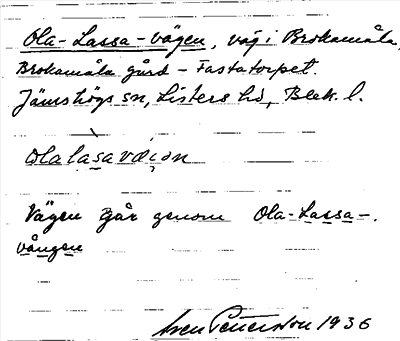 Ola-Lassa-vägen, väg i Brokamåla
Brokamåla gård - Fastatorpet.
Jämshögs sn, Listers hd, Blek. l.
Vägen går genom Ola-Lassa-
vången
Sven Petersson 1936